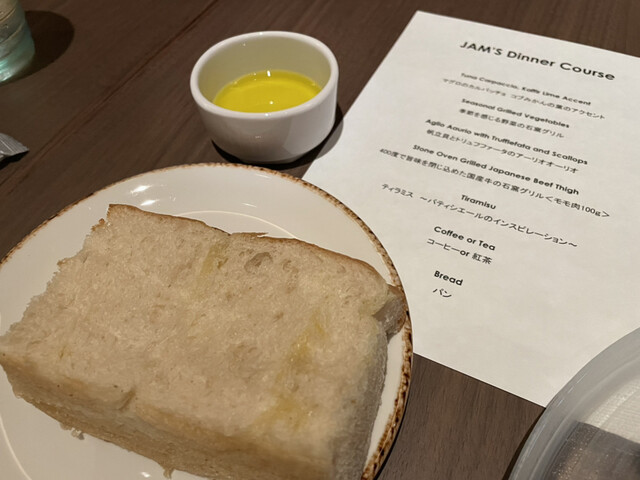 JAM'S Dinner Course
Tuna Carpaccio, Kaffir Lime Accent
マグロのカルパッチョ コブみかんの葉のアクセント
Seasonal Grilled Vegetables
季節を感じる野菜の石窯グリル
Aglio Aourio with Truffletata and Scallops
帆立貝とトリュフファータのアーリオオーリオ
Stone Oven Grilled Japanese Beef Thigh
400度で旨味を閉じ込めた国産牛の石窯グリル＜モモ肉100g＞
Tiramisu
ティラミス ～パティシエールのインスピレーション～
Coffee or Tea
コーヒーor 紅茶
Bread
パン